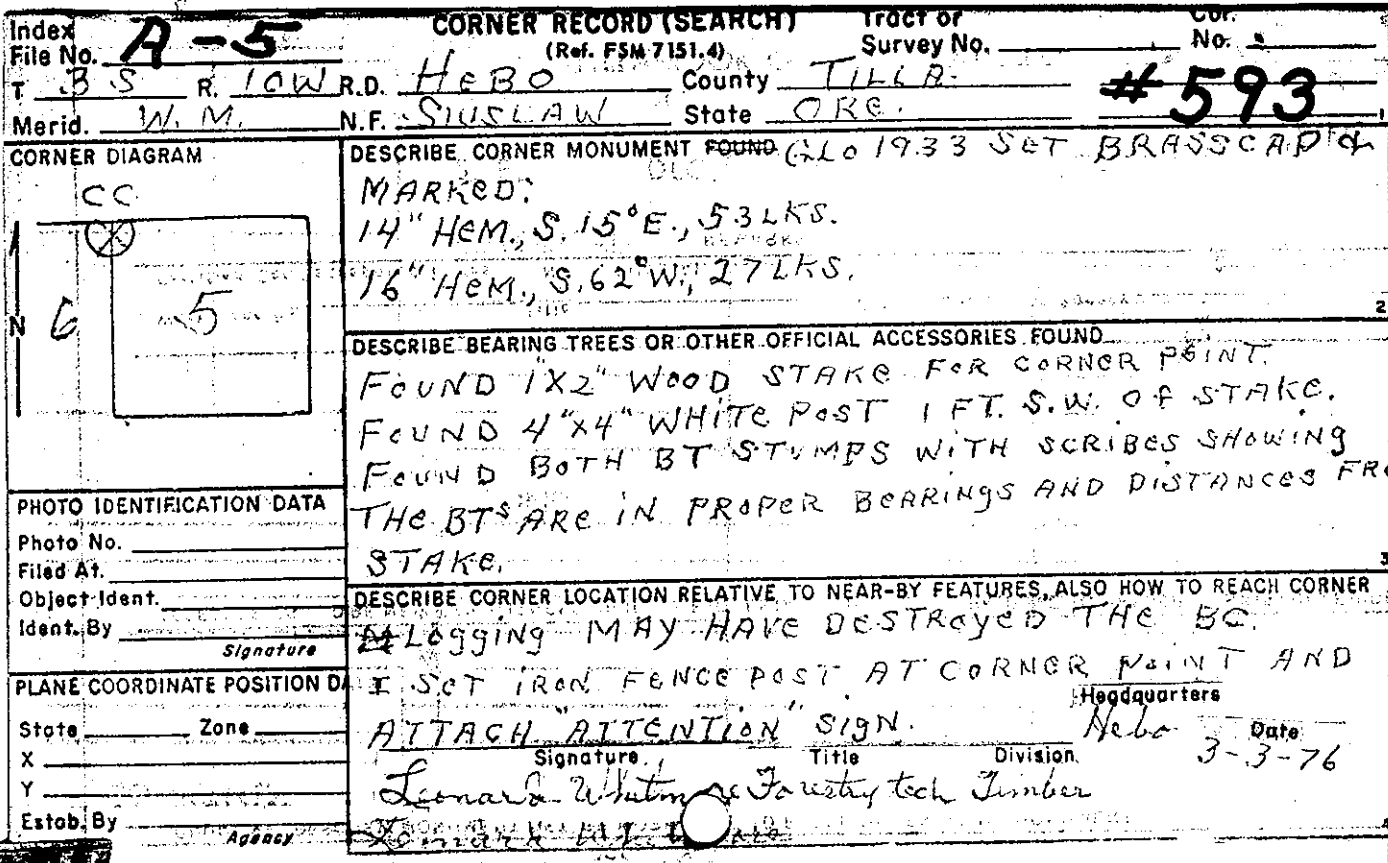 Index
File No. A-5
CORNER RECORD (SEARCH)
(Ref. FSM 7151.4)
Tract or
Survey No.
Cor.
No.
T 3 S R. 10W R.D. HEBO County TILLA.
#593
Merid. W. M. N.F. SIUSLAW State ORE.
CORNER DIAGRAM
CC
N 6 5
DESCRIBE CORNER MONUMENT FOUND GLO 1933 SET BRASSCAP &
MARKED:
14" HEM., S. 15° E., 53 LKS.
16" HEM., S. 62° W., 27 LKS.
2
DESCRIBE BEARING TREES OR OTHER OFFICIAL ACCESSORIES FOUND
FOUND 1X2" WOOD STAKE FOR CORNER POINT.
FOUND 4"X4" WHITE POST 1 FT. S.W. OF STAKE.
FOUND BOTH BT STUMPS WITH SCRIBES SHOWING
THE BTS ARE IN PROPER BEARINGS AND DISTANCES FRO
STAKE.
3
PHOTO IDENTIFICATION DATA
Photo No.
Filed At.
Object Ident.
Ident. By
Signature
DESCRIBE CORNER LOCATION RELATIVE TO NEAR-BY FEATURES, ALSO HOW TO REACH CORNER
LOGGING MAY HAVE DESTROYED THE BC.
I SET IRON FENCE POST AT CORNER POINT AND
ATTACH "ATTENTION" SIGN.
PLANE COORDINATE POSITION DA
State Zone
X
Y
Estab. By
Agency
Headquarters
Hebo
Date
3-3-76
Signature Title Division
Leonard Whitmore Forestry tech Timber